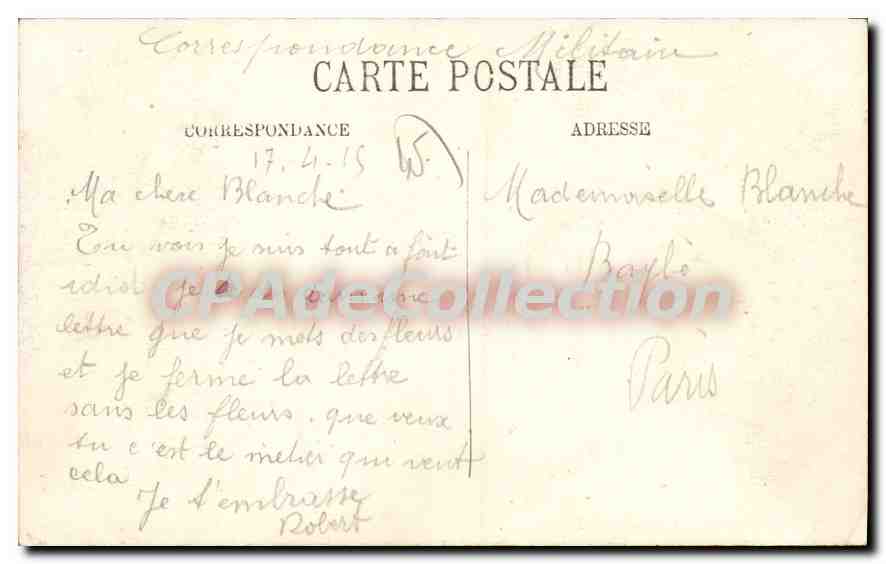 Correspondance Militaire
CARTE POSTALE
CORRESPONDANCE
ADRESSE
17.4-15
Ma chere Blanche
Tu vois je suis tout a fait
idiot je
lettre que je mets des fleurs
et je ferme la lettre
sans les fleurs. que veux
tu c'est le metier qui veut
cela
Je t'embrasse
Robert
Mademoiselle Blanche
Baylè
Paris
CPAdeCollection.com